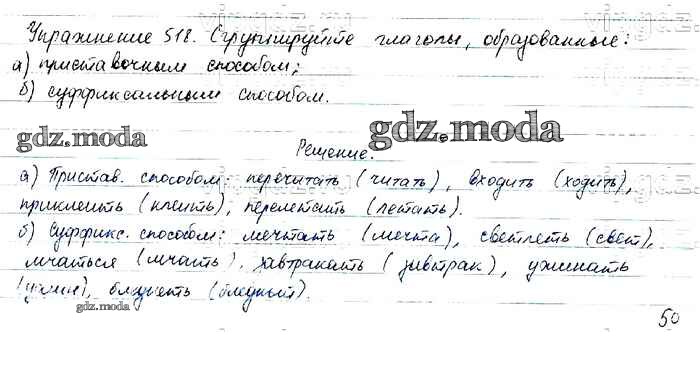 Упражнение 518. Сгруппируйте глаголы, образованные:
а) приставочным способом;
б) суффиксальным способом.
gdz.moda
gdz.moda
Решение.
а) Пристав. способом: перечитать (читать), входить (ходить),
приклеить (клеить), перелетать (летать).
б) Суффикс. способом: мечтать (мечта), светлеть (свет),
мчаться (мчать), завтракать (завтрак), ужинать
(ужин), бледнеть (бледный).
gdz.moda
50